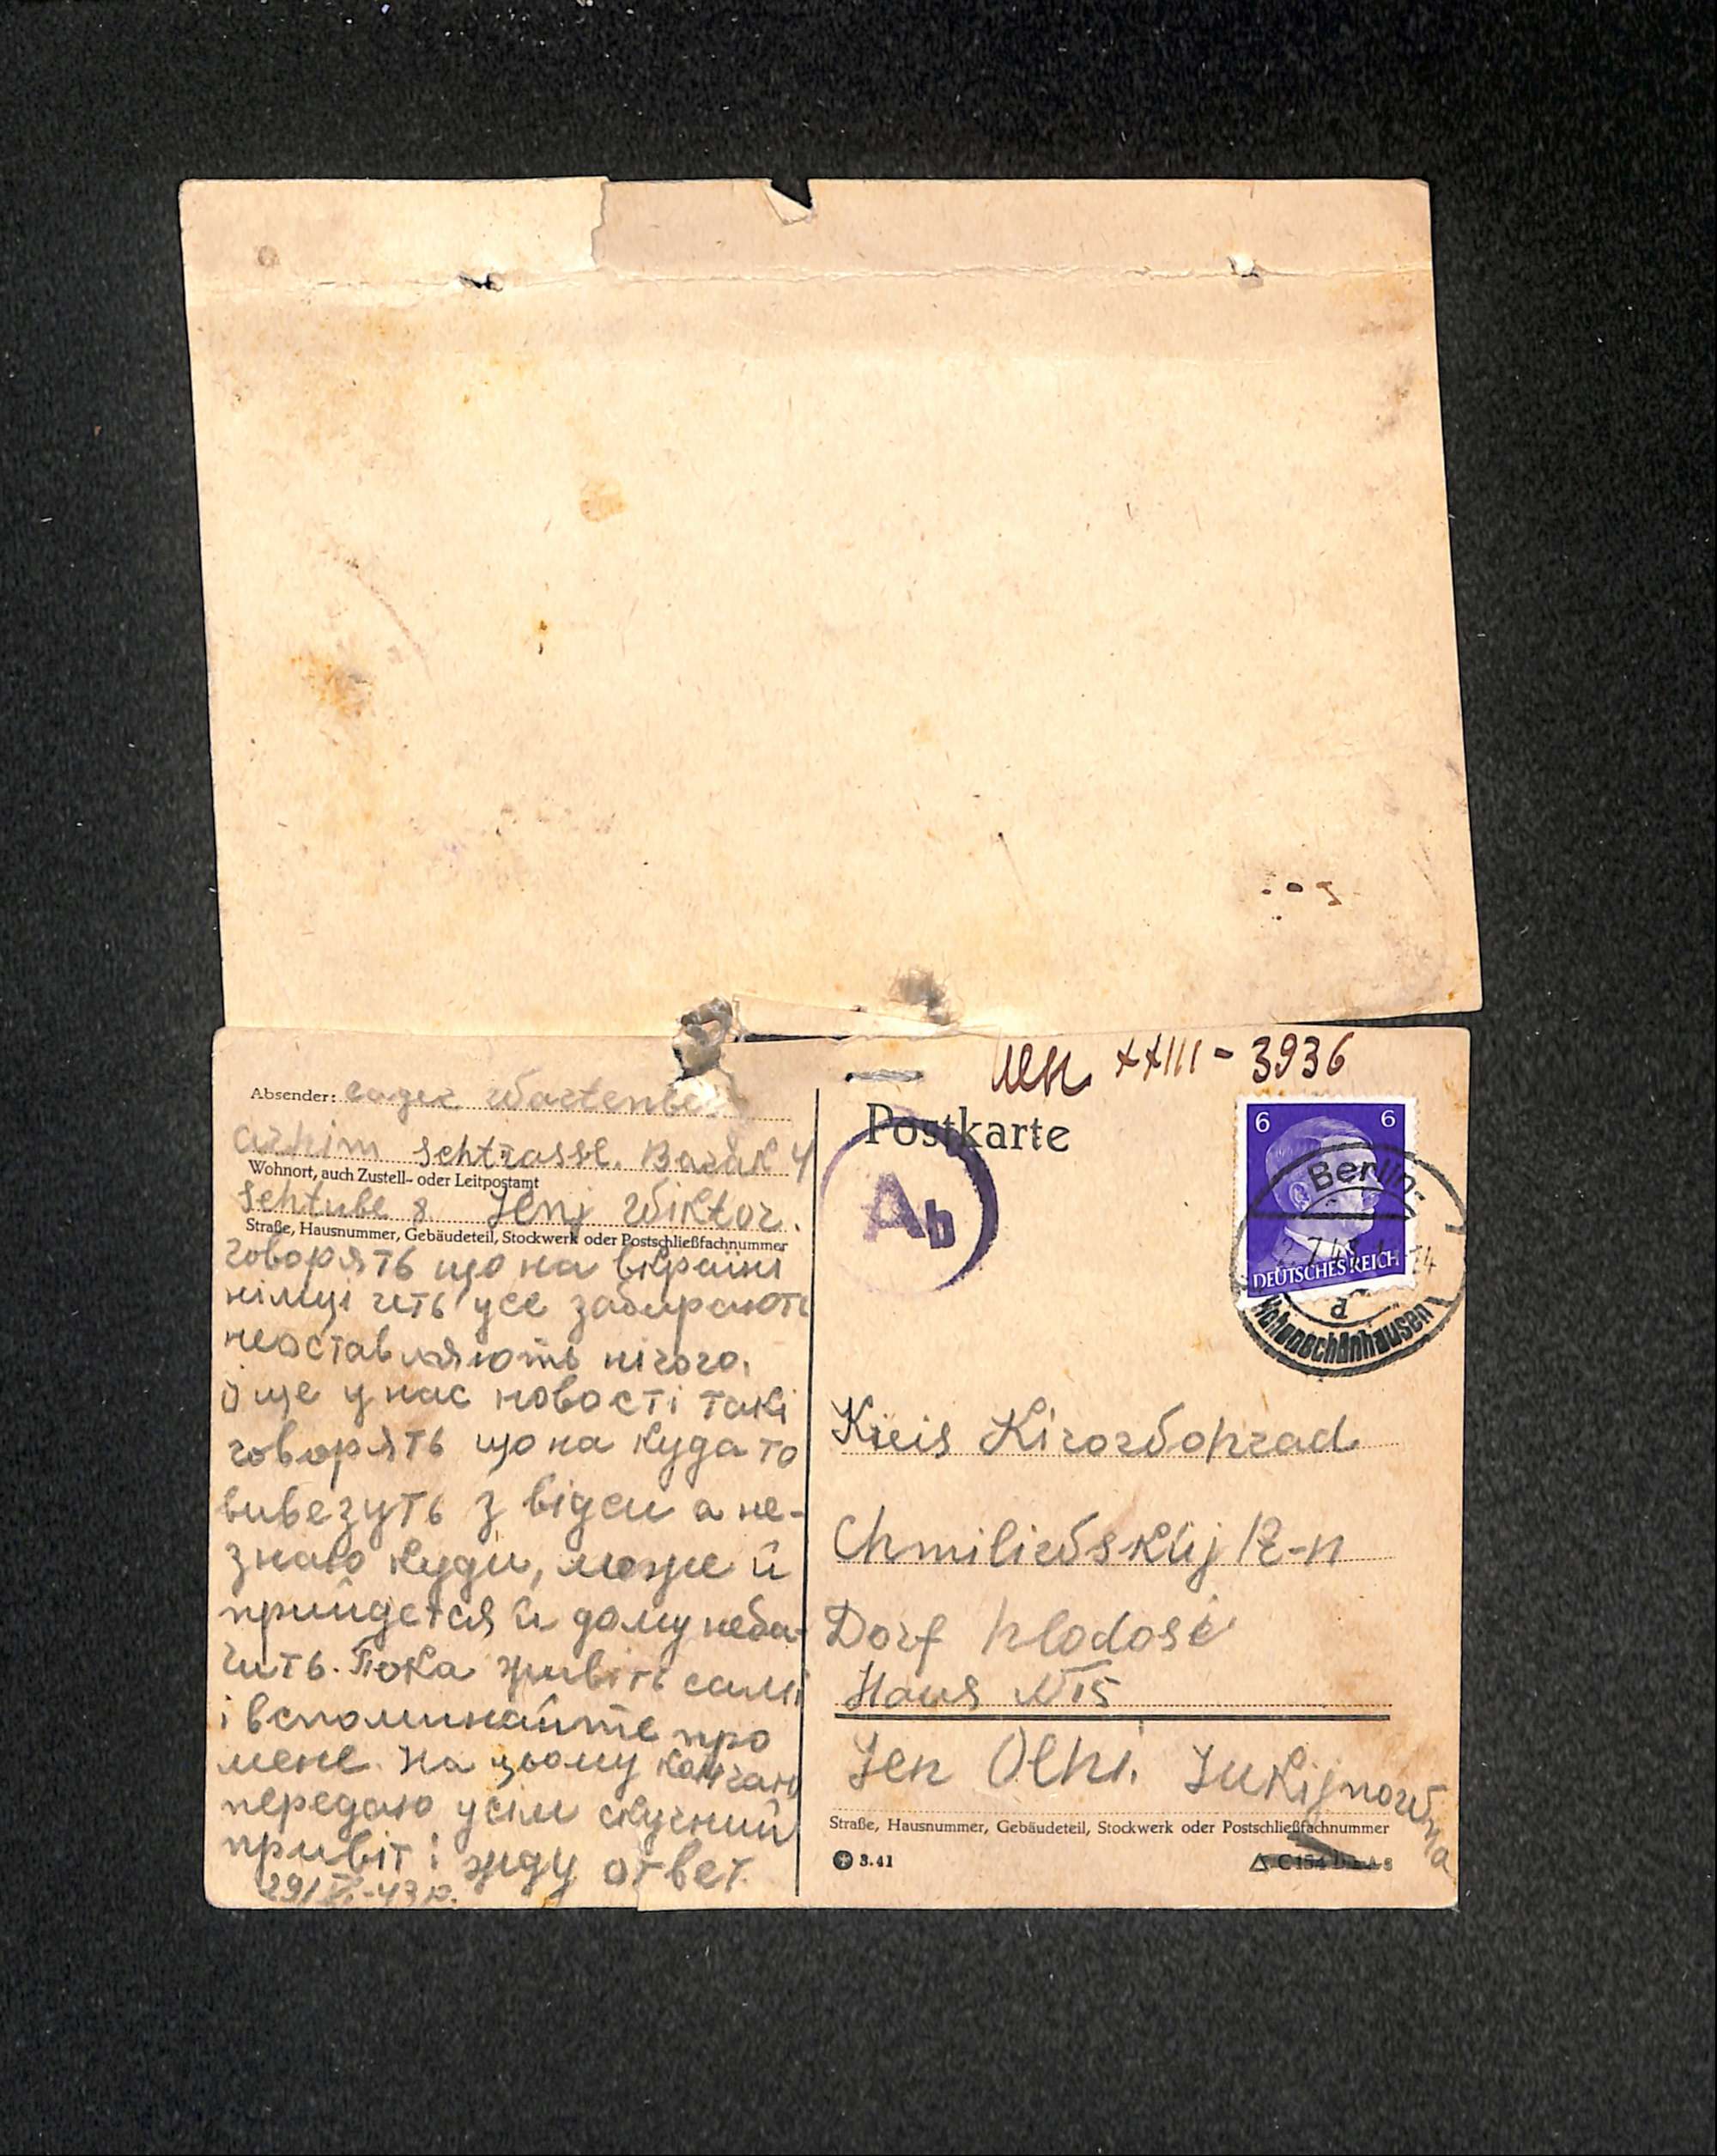 ИСК XXIII - 3936
Absender: Lager Wartenbe
Arhim Schtrasse. Barak 4
Wohnort, auch Zustell- oder Leitpostamt
Schtube 8. Jenj Wiktor.
Straße, Hausnummer, Gebäudeteil, Stockwerk oder Postschließfachnummer
говорять що на вкраіні
німці геть усе забирають
неоставляють нічого.
іще у нас новості такі
говорять що на куда то
вивезуть з відси а не-
знаю куди, може й
прийдеться й дому неба-
чить. Пока живіть самі
і вспоминайте про
мене. На цьому кончаю
передаю усім скучний
привіт! жду ответ.
29/VI-43 р.
Postkarte
Ab
6 6
DEUTSCHES REICH
Berlin-
Hohenschönhausen
a
Kreis Kirowohrad
Chmiliewsküj R-n
Dorf hlodosi
Haus №15
Jen Olhi. Jukijnowna
Straße, Hausnummer, Gebäudeteil, Stockwerk oder Postschließfachnummer
3.41
C 154